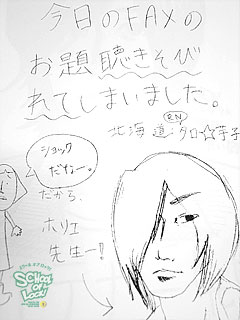 今日のFAXの
お題聴きそび
れてしまいました。
RN
北海道・クロ☆芋子
ショック
だなー。
だから、
ホリエ
先生ー!!
SCHOOL
OF
LOCK!